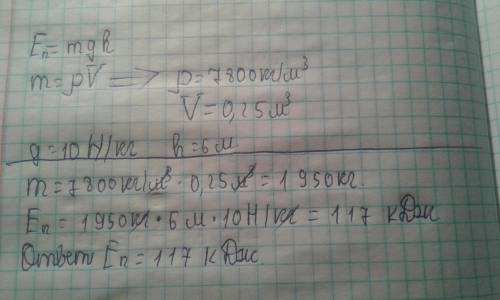 Eп=mgh
m=ρV => ρ=7800кг/м³
V=0,25м³
g=10Н/кг h=6м
m=7800кг/м³·0,25м³=1950кг.
Eп=1950кг·6м·10Н/кг=117 кДж
Ответ Eп=117 кДж.